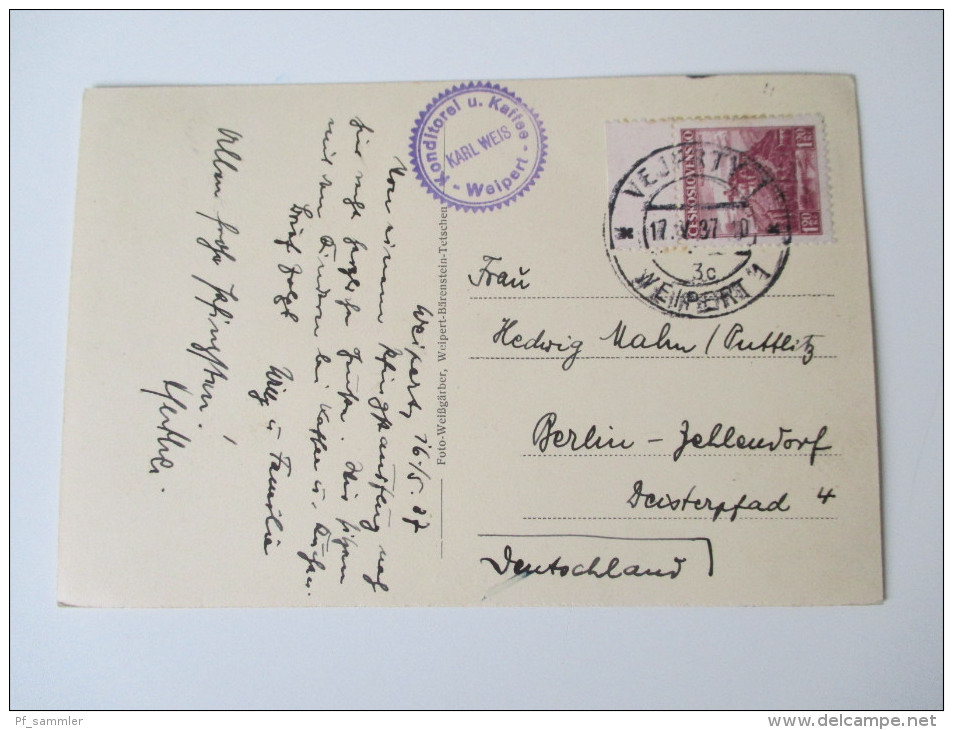 Konditorei u. Kaffee
KARL WEIS
- Weipert -
ČESKOSLOVENSKO
1.20
1.20
VEJPRTY 1
17. 37
3c
WEIPERT 1
Frau
Hedwig Mahn / Puttlitz
Berlin - Zehlendorf
Deisterpfad 4
Deutschland
Foto-Weißgärber, Weipert-Bärenstein-Tetschen
Weipert, 16/5. 37
Von einem Pfingstausflug nach
hier herzliche Grüße. Wir sitzen
mit den Kindern bei Kaffee u. Kuchen.
Brief folgt
u. Familie
Allen frohe Pfingsten!
Pf_sammler
www.delcampe.net